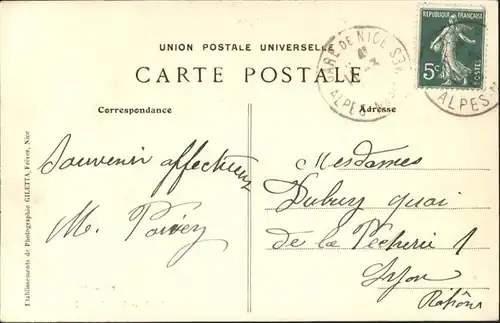 UNION POSTALE UNIVERSELLE
CARTE POSTALE
Correspondance
Adresse
GARE DE NICE
ALPES-M
REPUBLIQUE FRANÇAISE
5c
POSTES
ALPES-M
Souvenir affectueux
M.
Mesdames
Dubuy quai
de la Pêcherie 1
Lyon
Rhône
Etablissements de Photographie GILETTA, Frères, Nice